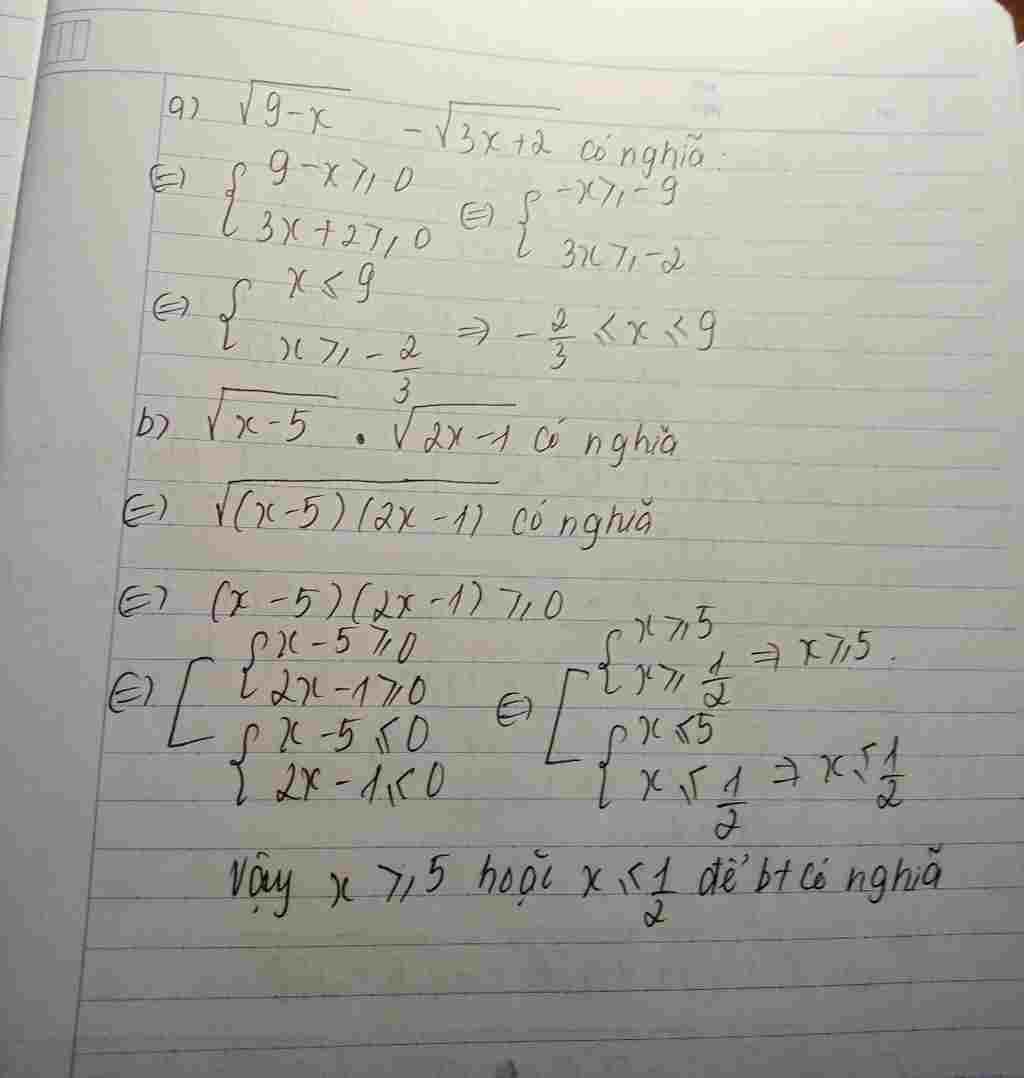 a) √(9-x) - √(3x+2) có nghĩa :
⇔ { 9-x ≥ 0 ; 3x+2 ≥ 0 ⇔ { -x ≥ -9 ; 3x ≥ -2
⇔ { x ≤ 9 ; x ≥ -2/3 ⇒ -2/3 ≤ x ≤ 9
b) √(x-5) . √(2x-1) có nghĩa
⇔ √((x-5)(2x-1)) có nghĩa
⇔ (x-5)(2x-1) ≥ 0
⇔ [ { x-5 ≥ 0 ; 2x-1 ≥ 0 ; { x-5 ≤ 0 ; 2x-1 ≤ 0 ⇔ [ { x ≥ 5 ; x ≥ 1/2 ⇒ x ≥ 5 . ; { x ≤ 5 ; x ≤ 1/2 ⇒ x ≤ 1/2
Vậy x ≥ 5 hoặc x ≤ 1/2 để bt có nghĩa